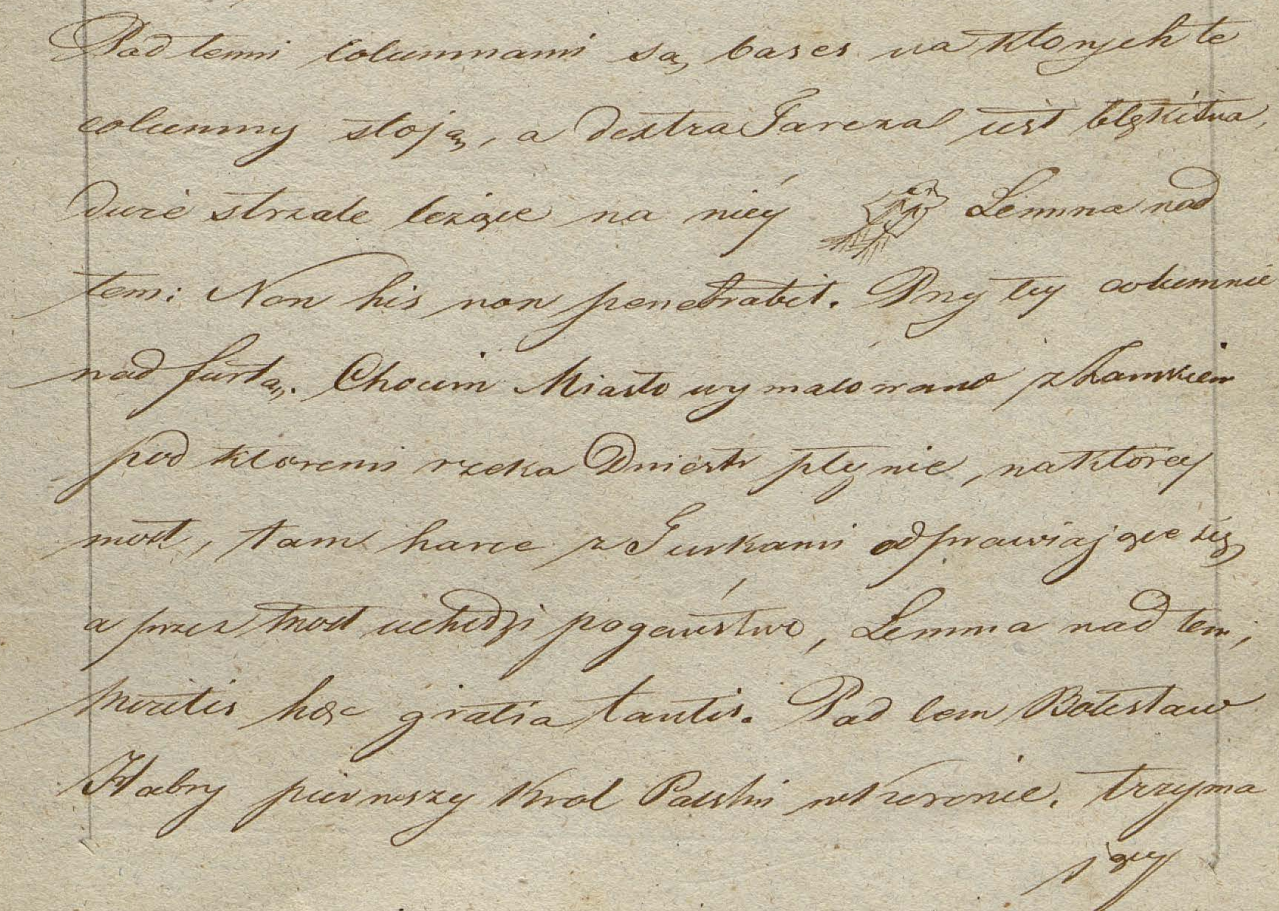 Pad temi columnami są, bases na ktorych te
columny stoją, a dextra Tarcza iest błękitna,
dwie strzale leżące na niéy Lemma nad
tem: Non his non penetrabit. Przy tey columnie
nad furtą. Chocim Miasto wymalowano z Zamkiem
pod ktoremi rzeka Dniestr płynie, na ktorey
most, tam harce z Turkami odprawiające się,
a przez most uchodzi pogaństwo, Lemma nad tem;
Meritis hæc gratia tantis. Pad tem Bolesław
Habry pierwszy Krol Polski w Koronie. trzyma